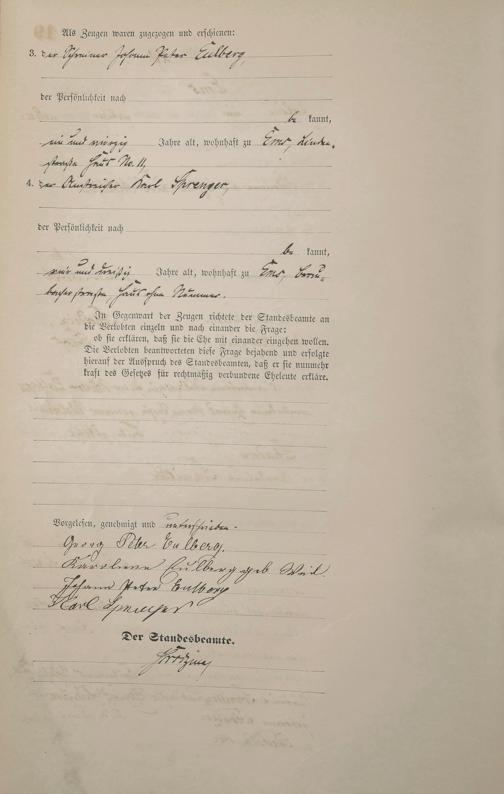 Als Zeugen waren zugezogen und erschienen:
3. der Schreiner Johann Peter Eulberg,
der Persönlichkeit nach
be kannt,
ein und vierzig Jahre alt, wohnhaft zu Ems, Linden-
straße Haus No. 11,
4. der Anstreicher Karl Sprenger,
der Persönlichkeit nach
be kannt,
vier und dreißig Jahre alt, wohnhaft zu Ems,
straße, Haus ohne Nummer.
In Gegenwart der Zeugen richtete der Standesbeamte an
die Verlobten einzeln und nach einander die Frage:
ob sie erklären, daß sie die Ehe mit einander eingehen wollen.
Die Verlobten beantworteten diese Frage bejahend und erfolgte
hierauf der Ausspruch des Standesbeamten, daß er sie nunmehr
kraft des Gesetzes für rechtmäßig verbundene Eheleute erkläre.
Vorgelesen, genehmigt und unterschrieben.
Georg Peter Eulberg.
Karoline Eulberg geb Weil.
Johann Peter Eulberg
Karl Sprenger
Der Standesbeamte.